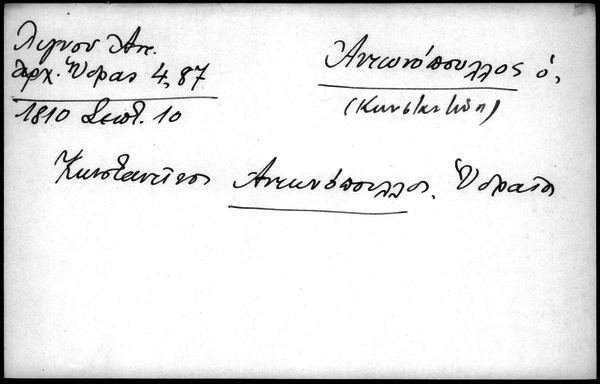 Λιγνού Αντ.
Ἀρχ. Ὕδρας 4, 87
1810 Σεπτ. 10
Ἀντωνόπουλλος ὁ,
(Κωνσταντίνη)
Κωνσταντίνος Ἀντωνόπουλλος. Ὑδραῖος